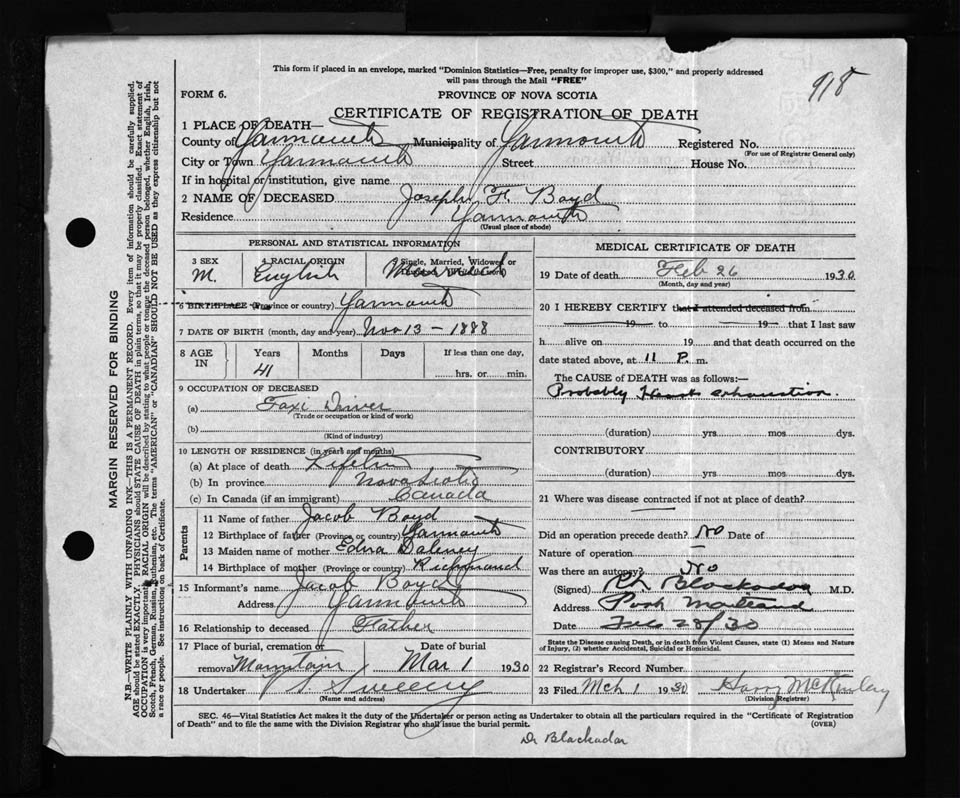 918
This form if placed in an envelope, marked "Dominion Statistics—Free, penalty for improper use, $300," and properly addressed
will pass through the Mail "FREE"
FORM 6.
PROVINCE OF NOVA SCOTIA
CERTIFICATE OF REGISTRATION OF DEATH
1 PLACE OF DEATH—
County of Yarmouth Municipality of Yarmouth Registered No.
(For use of Registrar General only)
City or Town Yarmouth Street House No.
If in hospital or institution, give name
2 NAME OF DECEASED Joseph F. Boyd
Residence Yarmouth
(Usual place of abode)
PERSONAL AND STATISTICAL INFORMATION
3 SEX 4 RACIAL ORIGIN Single, Married, Widowed or
M. English
6 BIRTHPLACE (Province or country) Yarmouth
7 DATE OF BIRTH (month, day and year) Nov 13 – 1888
8 AGE IN Years Months Days If less than one day,
41 hrs. or min.
9 OCCUPATION OF DECEASED
(a) Taxi Driver
(Trade or occupation or kind of work)
(b)
(Kind of industry)
10 LENGTH OF RESIDENCE (in years and months)
(a) At place of death
(b) In province Nova Scotia
(c) In Canada (if an immigrant) Canada
Parents
11 Name of father Jacob Boyd
12 Birthplace of father (Province or country) Yarmouth
13 Maiden name of mother Edna
14 Birthplace of mother (Province or country) Richmond
15 Informant's name Jacob Boyd
Address Yarmouth
16 Relationship to deceased Father
17 Place of burial, cremation or Date of burial
removal Mountain Mar 1 1930
18 Undertaker Sweeny
(Name and address)
MEDICAL CERTIFICATE OF DEATH
19 Date of death Feb 26 1930
(Month, day and year)
20 I HEREBY CERTIFY that I attended deceased from
19 to 19 that I last saw
h alive on 19 and that death occurred on the
date stated above, at 11 P. m.
The CAUSE OF DEATH was as follows:—
Probably Heart exhaustion.
(duration) yrs mos dys.
CONTRIBUTORY
(duration) yrs. mos. dys.
21 Where was disease contracted if not at place of death?
Did an operation precede death? No Date of
Nature of operation —
Was there an autopsy? No
(Signed) Blackadar M.D.
Address Port Maitland
Date Feb 28/30
State the Disease causing Death, or in death from Violent Causes, state (1) Means and Nature
of Injury, (2) whether Accidental, Suicidal or Homicidal.
22 Registrar's Record Number
23 Filed Mch 1 1930 Harry McKinlay
(Division Registrar)
SEC. 46—Vital Statistics Act makes it the duty of the Undertaker or person acting as Undertaker to obtain all the particulars required in the "Certificate of Registration
of Death" and to file the same with the Division Registrar who shall issue the burial permit. (OVER)
Dr Blackadar
MARGIN RESERVED FOR BINDING
N.B.—WRITE PLAINLY WITH UNFADING INK—THIS IS A PERMANENT RECORD. Every item of information should be carefully supplied.
AGE should be stated EXACTLY. PHYSICIANS should STATE CAUSE OF DEATH in plain terms, so that it may be properly classified. Exact statement of
OCCUPATION is very important. RACIAL ORIGIN will be described by stating to what people or tongue the deceased person belonged, whether English, Irish,
Scotch, French, German, Russian, Ruthenian, etc. The terms "AMERICAN" or "CANADIAN" SHOULD NOT BE USED as they express citizenship but not
a race or people. See instructions on back of Certificate.